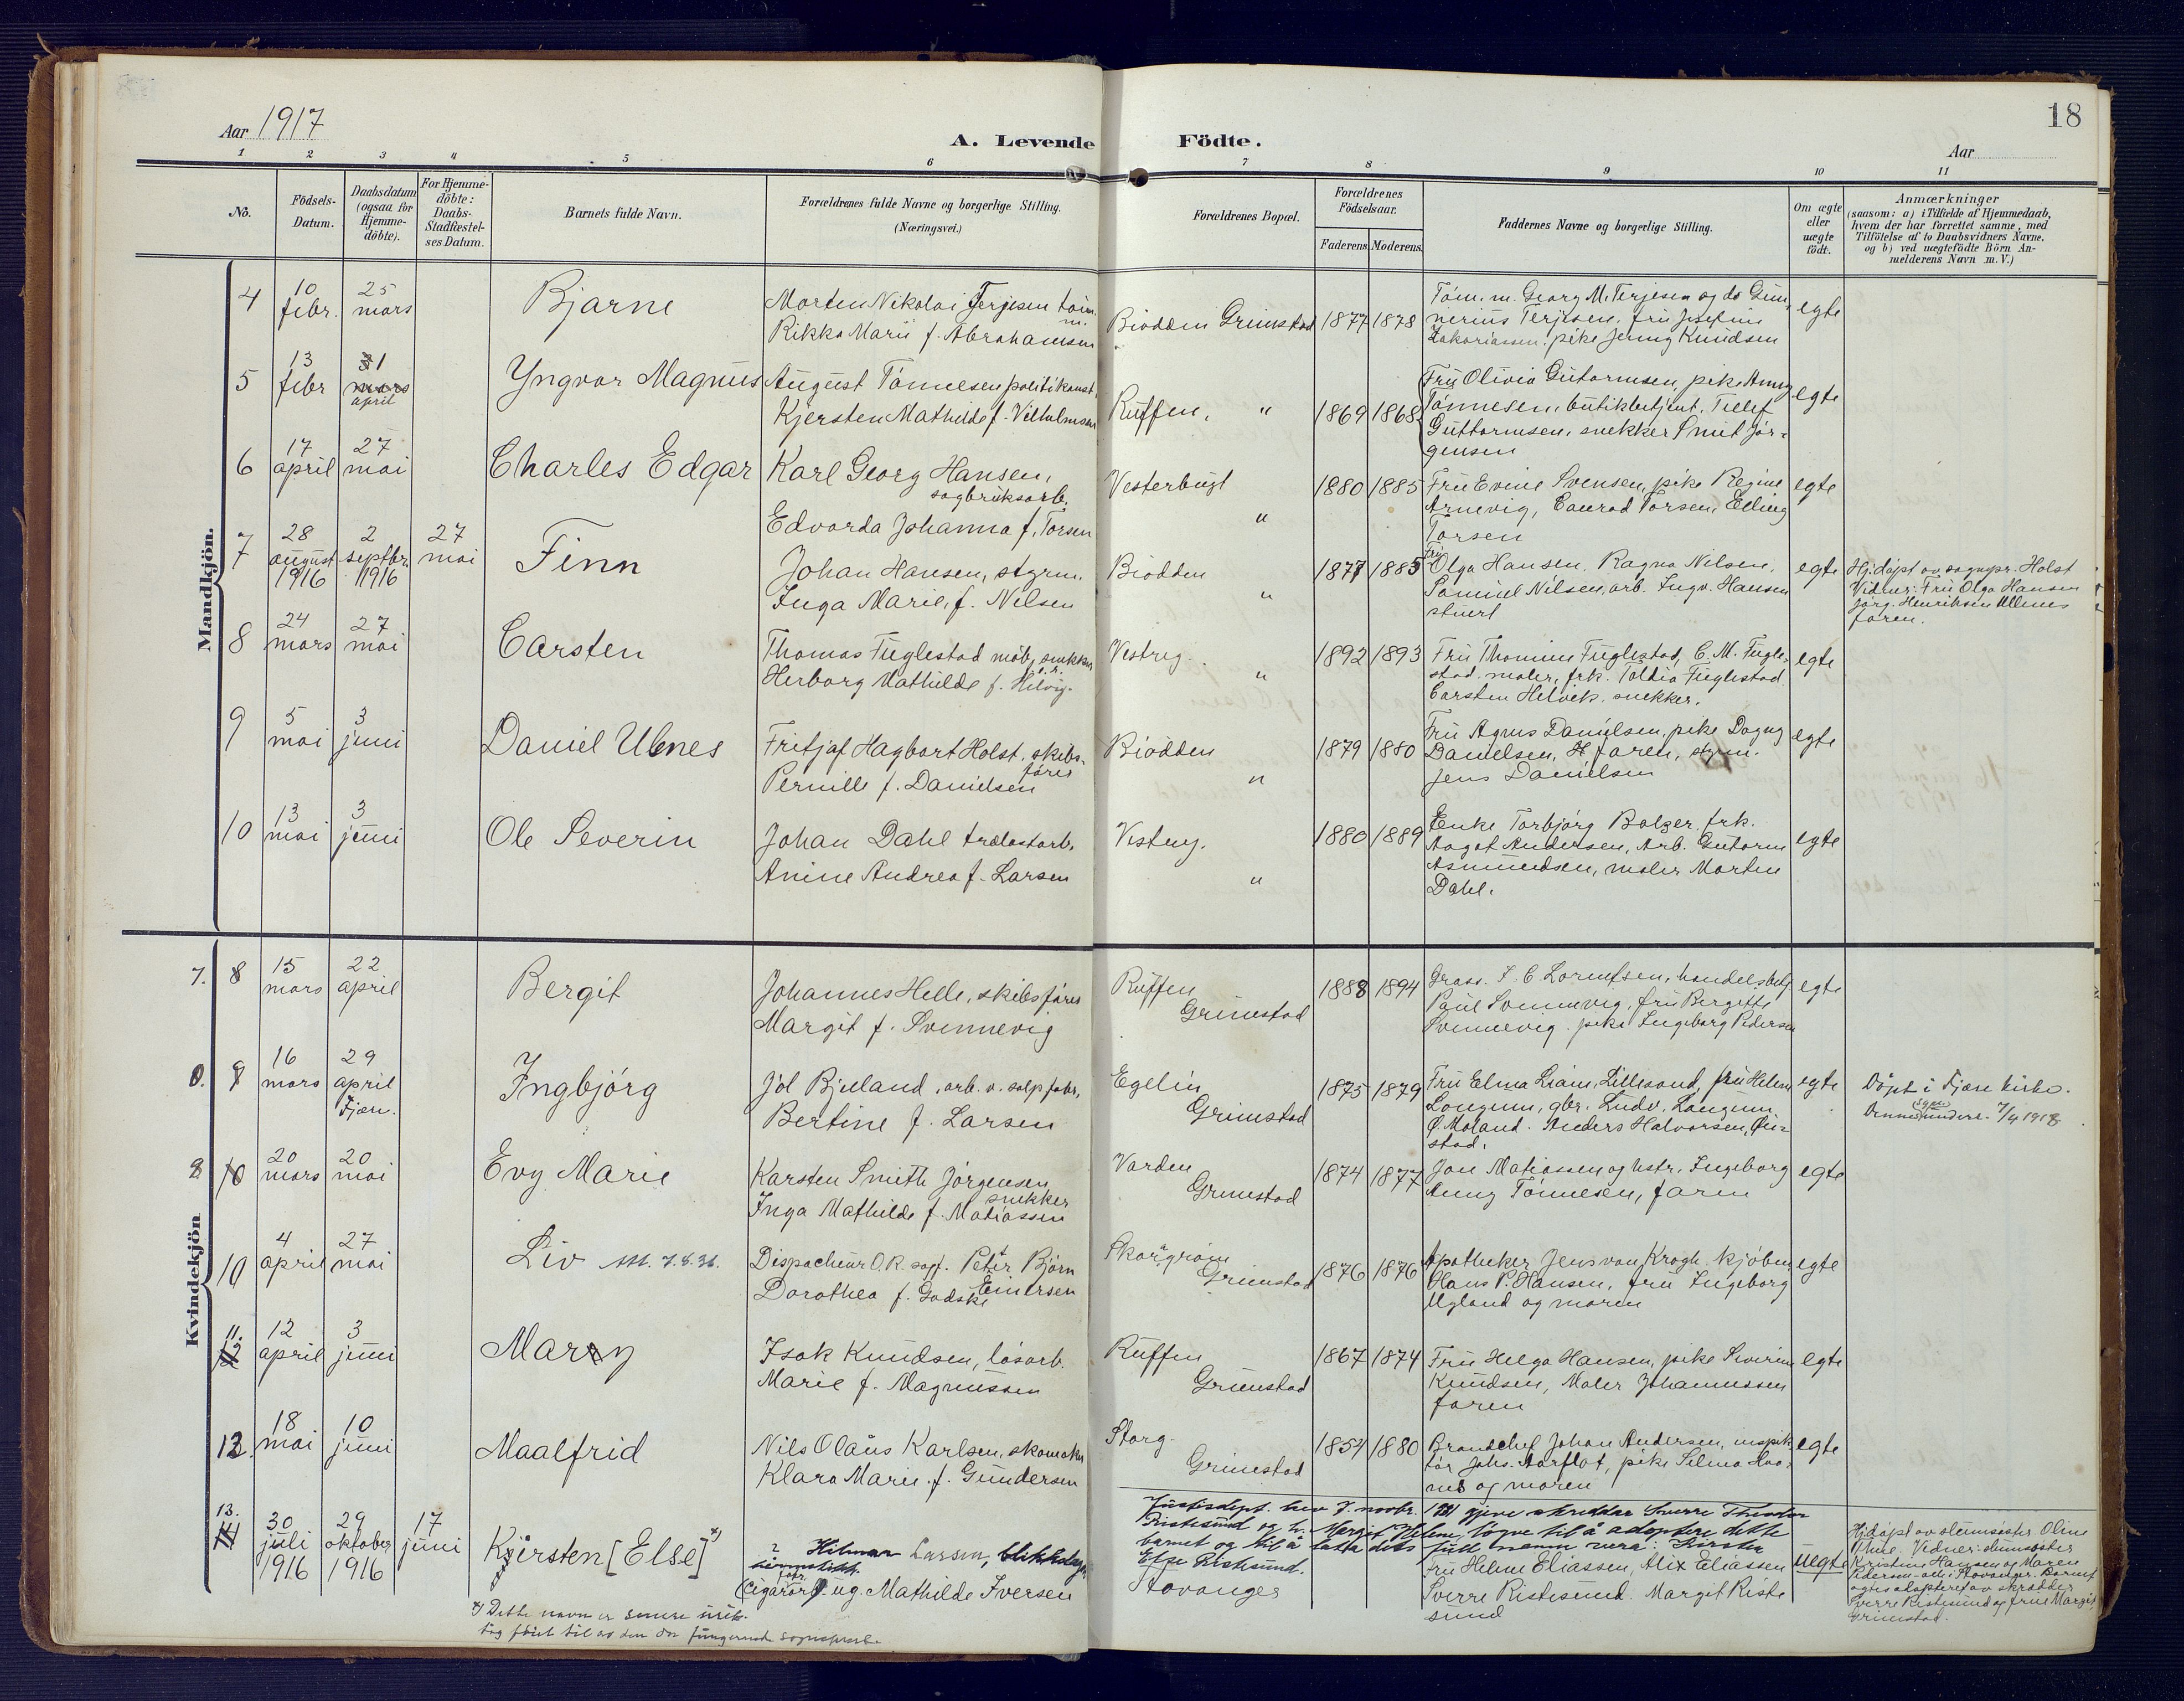 18
Aar 1917
A. Levende Födte.
Aar
1 2 3 4 5 6 7 8 9 10 11
No.
Födsels-
Datum.
Daabsdatum
(ogsaa for
Hjemme-
döbte).
For Hjemme-
döbte:
Daabs-
Stadfæstel-
ses Datum.
Barnets fulde Navn.
Forældrenes fulde Navne og borgerlige Stilling.
(Næringsvei.)
Forældrenes Bopæl.
Forældrenes
Födselsaar.
Faderens. Moderens.
Faddernes Navne og borgerlige Stilling.
Om ægte
eller
uægte
födt.
Anmærkninger
(saasom: a) i Tilfælde af Hjemmedaab,
hvem der har forrettet samme, med
Tilföielse af to Daabsvidners Navne,
og b) ved uægtefödte Börn An-
melderens Navn m. V.)
Mandkjön.
4
10
febr.
25
mars
Bjarne
Morten Nikolai Terjesen tøm.
m.
Rikka Marie f. Abrahamsen
Biodden Grimstad
1877 1878
Tøm. m. Georg M. Terjesen og do Gun
nerius Terjesen. fru Josefine
Zakariassen. pike Jenny Knudsen
egte
5
13
febr
1
mars
april
Yngvar Magnus
August Tönnesen politikonst.
Kjersten Mathilde f. Vilhelmsen
Ruffen. "
1869 1868
Fru Olivia Gutormsen, pike Anny
Tönnesen, butikbetjent. Tellef
Guttormsen, snekker Smit Jör-
gensen
egte
6
17
april
27
mai
Charles Edgar
Karl Georg Hansen,
sagbruksarb.
Edvarda Johanna f. Torsen
Vesterbugt
"
1880 1885
Fru Evine Svensen, pike Regine
Arnevig, Conrad Torsen, Elling
Torsen
egte
7
28
august
1916
2
septbr.
1916
27
mai
Finn
Johan Hansen, styrm.
Inga Marie, f. Nilsen
Biodden
"
1877 1885
Fru
Olga Hansen. Ragna Nilsen.
Samuel Nilsen, arb. Ingv. Hansen
stuert
egte
Hj.döpt av sognepr. Holst
Vidner: Fru Olga Hansen
Jörg. Henriksen Ullenes
faren.
8
24
mars
27
mai
Carsten
Thomas Fuglestad möb. snekker
Herborg Mathilde f. Helvig.
Vestreg.
"
1892 1893
Fru Thomine Fuglestad, C. M. Fugle-
stad. maler, frk. Toldia Fuglestad
Carsten Helvik. snekker.
egte
9
5
mai
3
juni
Daniel Ulenes
Fritjof Hagbart Holst, skibs-
förer
Pernille f. Danielsen
Biodden
"
1879 1880
Fru Agnes Danielsen, pike Dagny
Danielsen, faren, styrm.
Jens Danielsen
egte
10
13
mai
3
juni
Ole Severin
Johan Dahl trælastarb.
Anine Andrea f. Larsen
Vestreg.
"
1880 1889
Enke Torbjörg Bolger. frk.
Aagot Andersen, Arb. Gutorm
Asmundsen, maler Morten
Dahl.
egte
Kvindekjön
7. 8
15
mars
22
april
Bergit
Johannes Helle, skibsförer
Margit f. Svennevig
Ruffen
Grimstad
1888 1894
Gross. F. C. Lorentsen, handelsbetj
Paul Svennevig, fru Bergitte
Svennevig. pike Ingeborg Pedersen
egte
8. 9
16
mars
29
april
Fjære.
Ingbjörg
Jol Bjelland, arb. v. salp.fabr.
Bertine f. Larsen
Egelin
Grimstad
1875 1879
Fru Elma Liane, Lillesand, fru Helene
Longum, gbr. Ludv. Longum
Ø. Moland. Anders Halvorsen, Öie-
stad.
egte
Döpt i Fjære kirke.
7/4 1918.
9 10
20
mars
20
mai
Evy Marie
Karsten Smith Jörgensen
snekker
Inga Mathilde f. Matiassen
Varden
Grimstad
1874 1877
Jon Matiassen og hstr. Ingeborg
Anny Tönnesen, faren
egte
10
4
april
27
mai
Liv
Dispacheur O.R. sagf. Peter Björn
Einersen
Dorothea f. Godske
Skaregröm
Grimstad
1876 1876
Apotheker Jens von Krogh. kjöbm
Olaus P. Hansen, fru Ingeborg
Ugland og moren
egte
11.
12
12
april
3
juni
Marry
Isak Knudsen, lösarb.
Marie f. Magnussen
Ruffen
Grimstad
1867 1874
Fru Helga Hansen, pike Severine
Knudsen, Maler Johannessen
faren
egte
12.
18
mai
10
juni
Maalfrid
Nils Olaus Karlsen, skomaker
Klara Marie f. Gundersen
Storg.
Grimstad
1854 1880
Brandchef Johan Andersen, inspek
tör Johs. Aarflot, pike Selma Haa-
nes og moren
egte
13.
14
30
juli
1916
29
oktober
1916
17
juni
Kjersten [Else] *)
? Hilmar Larsen, blikkslager
(cigararb.) ug. Mathilde Iversen
Justisdept. hev 7. novbr. gjeve skreddar Sverre Theodor
Ristesund og h. Margit Helene, lögve til å adoptere dette
barnet og til å lata dets full namn vera: Kirsten
Else Ristesund.
Stavanger
Fru Helene Eliassen, Alix Eliassen
Sverre Ristesund. Margit Riste
sund
uegte
Hj.döpt av diakonisse Oline
Thue. Vidner: söster
Kristine Hansen og Maren
Pedersen Stavanger. Barnet
agtes adopteret av skrædder
Sverre Ristesund og frue Margit,
Grimstad.
*) Dette navn er senere
föiet til av den da fungerende sogneprest